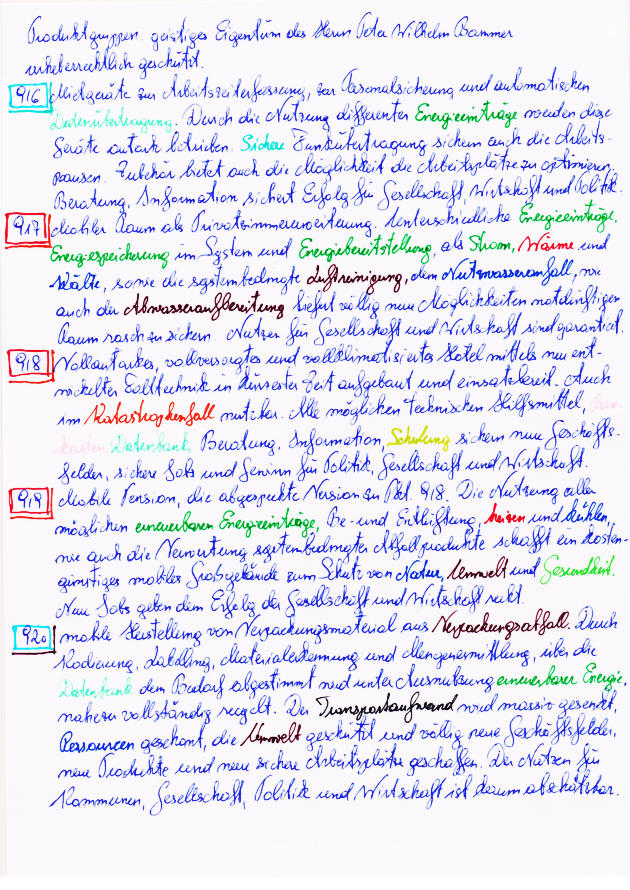 Produktgruppen geistiges Eigentum des Herrn Peter Wilhelm Bammer
urheberrechtlich geschützt.
916 Meldgeräte zur Arbeitszeiterfassung, zur Personalsicherung und automatischen
Datenübertragung. Durch die Nutzung differenter Energieeinträge werden diese
Geräte autark betrieben. Sichere Funkübertragung sichern auch die Arbeits-
pausen. Zubehör bietet auch die Möglichkeit die Arbeitsplätze zu optimieren.
Beratung, Information sichert Erfolg für Gesellschaft, Wirtschaft und Politik.
917 Mobiler Raum als Privatzimmererweiterung. Unterschiedliche Energieeinträge,
Energiespeicherung im System und Energiebereitstellung, als Strom, Wärme und
Kälte, sowie die systembedingte Luftreinigung, dem Nutzwasseranfall, wie
auch der Abwasseraufbereitung liefert völlig neue Möglichkeiten notdürftigen
Raum rasch zu sichern. Nutzen für Gesellschaft und Wirtschaft sind garantiert.
918 Vollautarkes, vollversorgtes und vollklimatisiertes Hotel mittels neu ent-
wickelter Falttechnik in kürzester Zeit aufgebaut und einsatzbereit. Auch
im Katastrophenfall nutzbar. Alle möglichen technischen Hilfsmittel, Bau-
karten, Datenbank, Beratung, Information, Schulung sichern neue Geschäfts-
felder, sichere Jobs und Gewinn für Politik, Gesellschaft und Wirtschaft.
919 Mobile Pension, die abgespeckte Version zu Pkt. 918. Die Nutzung aller
möglichen erneuerbaren Energieeinträge, Be- und Entlüftung, heizen und kühlen,
wie auch die Verwertung systembedingter Abfallprodukte schafft ein kosten-
günstiges mobiles Großgebäude zum Schutz von Natur, Umwelt und Gesundheit.
Neue Jobs geben dem Erfolg der Gesellschaft und Wirtschaft recht.
920 mobile Herstellung von Verpackungsmaterial aus Verpackungsabfall. Durch
Kodierung, Labelling, Materialerkennung und Mengenermittlung, über die
Datenbank dem Bedarf abgestimmt wird unter Ausnutzung erneuerbarer Energie,
nahezu vollständig recycelt. Der Transportaufwand wird massiv gesenkt,
Ressourcen geschont, die Umwelt geschützt und völlig neue Geschäftsfelder,
neue Produkte und neue sichere Arbeitsplätze geschaffen. Der Nutzen für
Kommunen, Gesellschaft, Politik und Wirtschaft ist daraus abschätzbar.